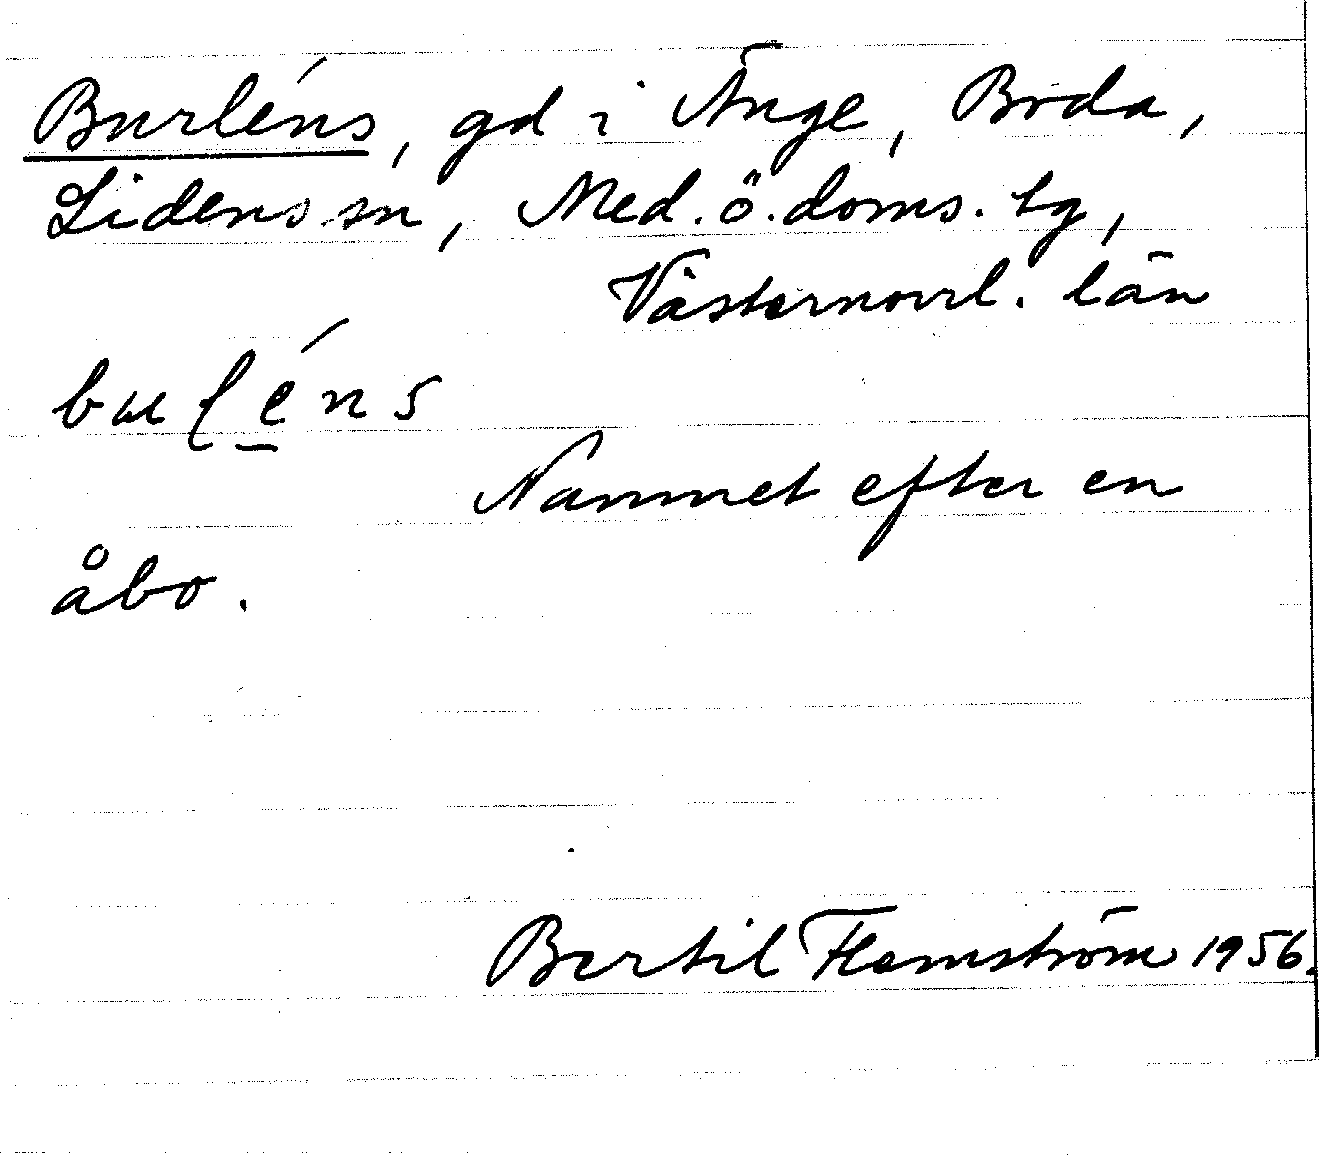 Burléns, gd i Änge, Boda,
Lidens sn, Med. ö. doms. tg,
Västernorrl. län
buɭéns
Namnet efter en
åbo.
Bertil Flemström 1956.